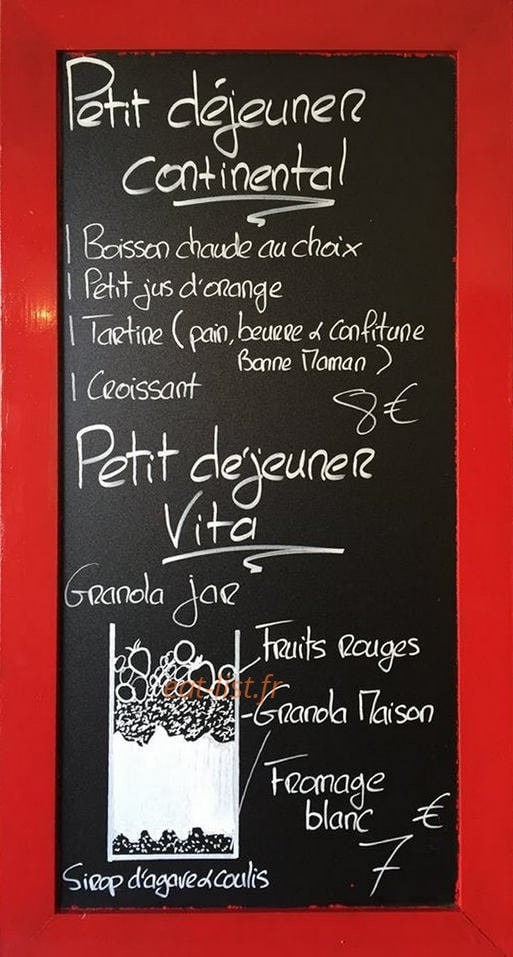 Petit déjeuner
continental
1 Boisson chaude au choix
1 Petit jus d'orange
1 Tartine (pain, beurre & confiture
Bonne Maman)
1 Croissant
8€
Petit déjeuner
Vita
Granola jar
Fruits rouges
eat-list.fr
Granola Maison
Fromage
blanc
7 €
Sirop d'agave & coulis